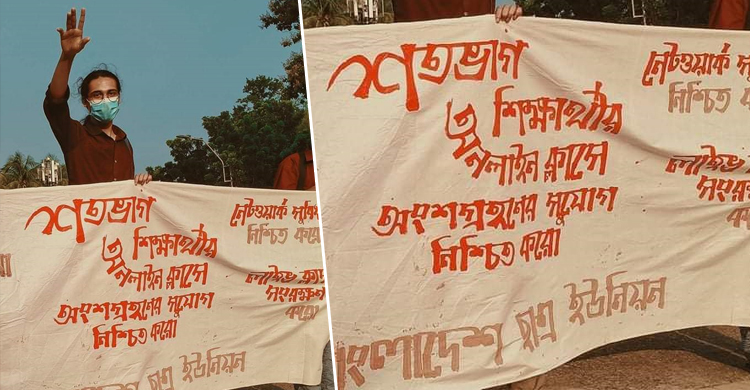 শতভাগ
শিক্ষার্থীর
অনলাইন ক্লাসে
অংশগ্রহণের সুযোগ
নিশ্চিত করো
নেটওয়ার্ক সুবি
নিশ্চিত করো
লাইভ ক্লা
সংরক্ষণ
করো
ছাত্র ইউনিয়ন
শতভাগ
শিক্ষার্থীর
অনলাইন ক্লাসে
অংশগ্রহণের সুযোগ
নিশ্চিত করো
নেটওয়ার্ক সু
নিশ্চিত করে
লাইভ ক্লা
সংরক্ষ
ক
বাংলাদেশ ছাত্র ইউনিয়ন